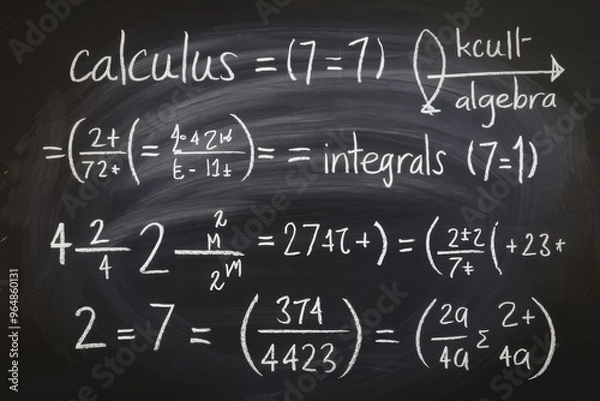 calculus = (7 = 7) kcult
algebra
= (2+/72* (= = = integrals (7=1)
4 2/4 2 M²/2^M = 27+) = (2±2/7± (+23*
2 = 7 = (374/4423) = (2a/4a Σ 2+/4a)
Adobe Stock | #964860131